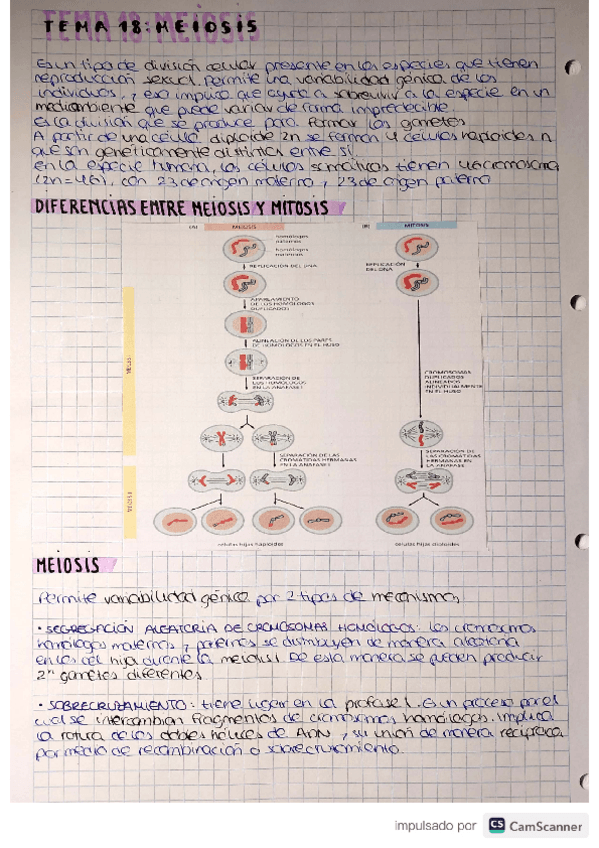 TEMA 18: MEIOSIS
Es un tipo de división celular presente en las especies que tienen
reproducción sexual. Permite una variabilidad génica de los
individuos, y eso implica que ayuda a sobrevivir a la especie en un
medioambiente que puede variar de forma impredecible.
Es la división que se produce para formar los gametos
A partir de una célula diploide 2n se forman 4 células haploides n
que son genéticamente distintas entre sí
en la especie humana, las células somáticas tienen 46 cromosomas
(2n=46), con 23 de origen materno y 23 de origen paterno
DIFERENCIAS ENTRE MEIOSIS Y MITOSIS
(A) MEIOSIS
(B) MITOSIS
homólogos
paternos
homólogos
maternos
REPLICACIÓN DEL DNA
REPLICACIÓN
DEL DNA
APAREAMIENTO
DE LOS HOMÓLOGOS
DUPLICADOS
ALINEACIÓN DE LOS PARES
DE HOMÓLOGOS EN EL HUSO
SEPARACIÓN DE
LOS HOMÓLOGOS
EN LA ANAFASE I
CROMOSOMAS
DUPLICADOS
ALINEADOS
INDIVIDUALMENTE
EN EL HUSO
SEPARACIÓN DE LAS
CROMÁTIDAS HERMANAS
EN LA ANAFASE II
SEPARACIÓN DE
LAS CROMÁTIDAS
HERMANAS EN
LA ANAFASE
células hijas haploides
células hijas diploides
MEIOSIS
Permite variabilidad génica por 2 tipos de mecanismos
• SEGREGACIÓN ALEATORIA DE CROMOSOMAS HOMÓLOGOS: los cromosomas
homólogos maternos y paternos se distribuyen de manera aleatoria
en las cél. hija durante la meiosis I. De esta manera se pueden producir
2ⁿ gametos diferentes
• SOBRECRUZAMIENTO: tiene lugar en la profase I. Es un proceso por el
cual se intercambian fragmentos de cromosomas homólogos. Implica
la rotura de las dobles hélices de ADN y su unión de manera recíproca
por medio de recombinación o sobrecruzamiento.
impulsado por CS CamScanner